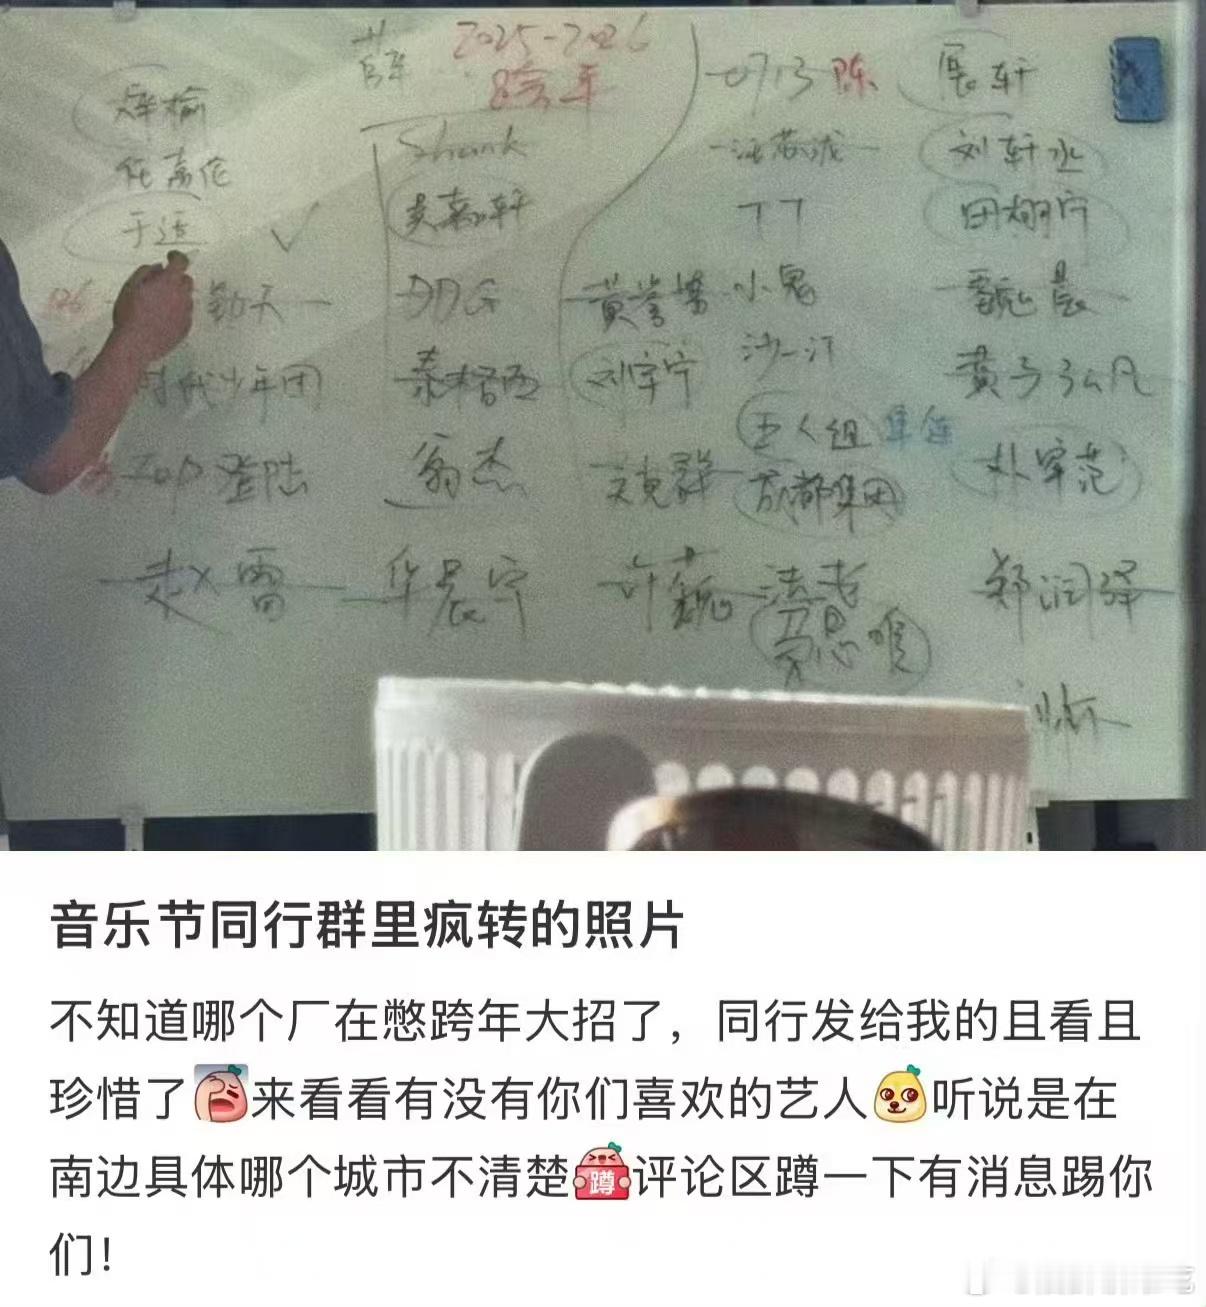 首年 2025-2026
跨年
檀榆
任嘉伦
于适
勤天
时代少年团
TOP登陆
赵雷
Shank
DDG
秦格西
翁杰
华晨宇
黄誉博
刘宇宁
艾克群
许巍
0713 陈
汪苏泷
TT
小鬼
沙一汀
五人组
成都集团
法老
展轩
刘轩丞
田栩宁
魏晨
黄子弘凡
朴宰范
郑润泽
音乐节同行群里疯转的照片
不知道哪个厂在憋跨年大招了，同行发给我的且看且
珍惜了来看看有没有你们喜欢的艺人听说是在
南边具体哪个城市不清楚蹲评论区蹲一下有消息踢你
们！